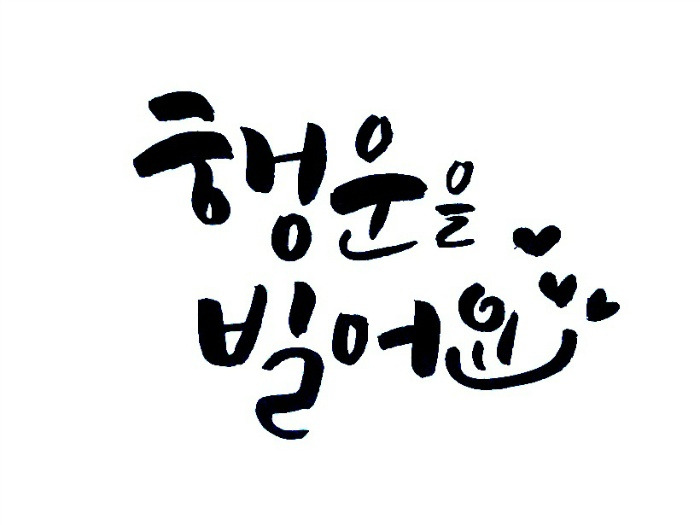 행운을
빌어요